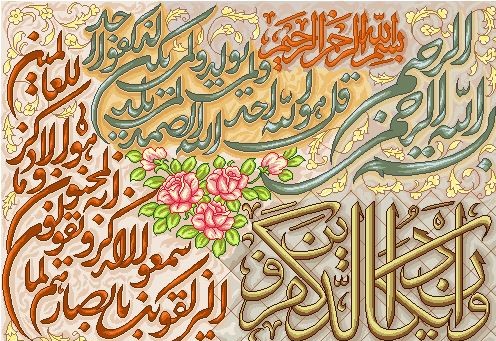 بسم الله الرحمن الرحيم
بسم الله الرحمن الرحيم
قل هو الله احد
الله الصمد لم يلد
ولم يولد ولم يكن له كفوا احد
وان يكاد الذين كفروا
ليزلقونك بابصارهم لما
سمعوا الذكر ويقولون
انه لمجنون وما
هو الا ذكر
للعالمين